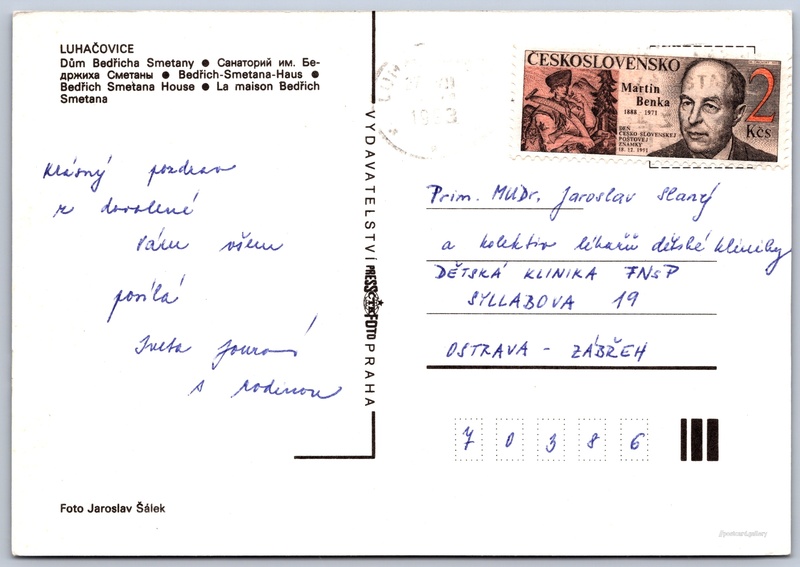 LUHAČOVICE
Dům Bedřicha Smetany ● Санаторий им. Бе-
држиха Сметаны ● Bedřich-Smetana-Haus ●
Bedřich Smetana House ● La maison Bedřich
Smetana
Krásný pozdrav
z dovolené
Vám všem
posílá
Iveta
s rodinou
Foto Jaroslav Šálek
VYDAVATELSTVÍ PRESSFOTO PRAHA
1993
ČESKOSLOVENSKO
Martin
Benka
1888 - 1971
DEN
ČESKO SLOVENSKEJ
POŠTOVEJ
ZNÁMKY
18. 12. 1991
2
Kčs
Prim. MUDr. Jaroslav Slaný
a kolektiv lékařů dětské kliniky
DĚTSKÁ KLINIKA FNsP
SYLLABOVA 19
OSTRAVA - ZÁBŘEH
7 0 3 8 6